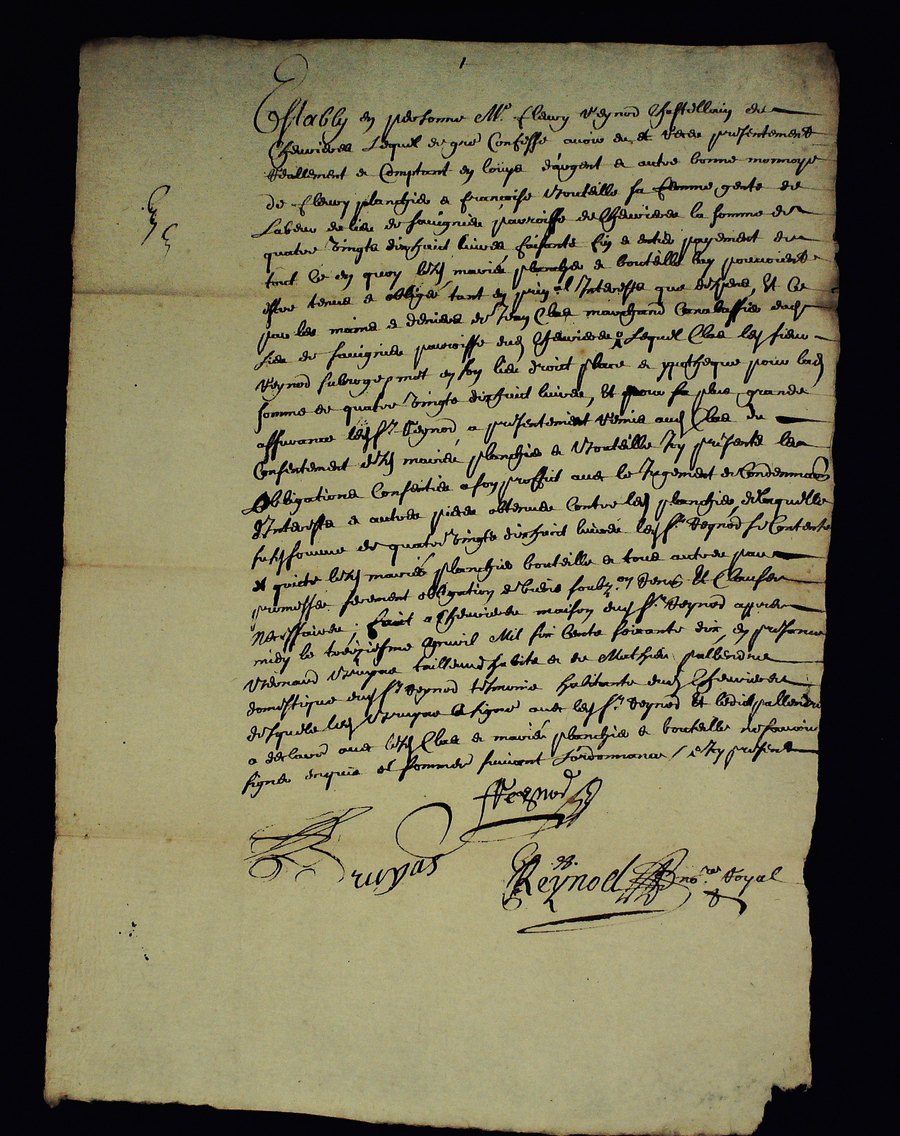 Establÿ en personne Mr. fleury Reynod Chastellain de
Chevrieres Lequel de gré Confesse avoir eu et receu presentement
Réallement et Comptant en loüys d'argent et autre bonne monnoye
de fleury planchier et francoise bouteille sa femme gents de
Labeur du lieu de parroisse de Chevrieres la somme de
quatre vingts dixhuict livres faisants fin et entier payement de
tout ce en quoy lesd mariés planchier et bouteille luy pouvoient
estre tenus et obligé tant en prin.al Interests que despens, Et Ce
par les mains et deniers de Jean Clas marchand dud
Lieu de parroisse dud Chevrieres Lequel Clas led sieur
Reynod subroge et met en son lieu droict place et ypotheque pour lad
somme de quatre vingts dixhuict livres, Et pour sa plus grande
assurance led Sr. Reynod a presentement remis aud Clas du
Consentement desd mariés planchier et bouteille Icy presents les
Obligations Consenties a son proffit avec le Jugement de Condemnaon
Interests et autres pieces obtenues Contre led planchier, de laquelle
susd somme de quatre vingts dixhuict livres led Sr. Reynod se Contente
et quicte lesd mariés planchier bouteille et tous autres par
promesse serement obligation de biens soubz.on Renon et Clauses
Necessaires, fait a Chevrieres maison dud Sr. Reynod apres
midy le treziesme Apvril Mil six Cents soixante dix, en presence
Bernard Bruyas tailleur d'habits et de Mathieu pallendre
domestique dud Sr. Reynod tesmoins habitants dud Chevrieres
desquels led Bruyas a signé avec led Sr. Reynod Et ledict pallendre
a declaré avec lesd Clas et mariés planchier et bouteille ne scavoir
signer enquis et sommés suivant Lordonnance /
FReynod
Bruyas
Reynod no.re Royal